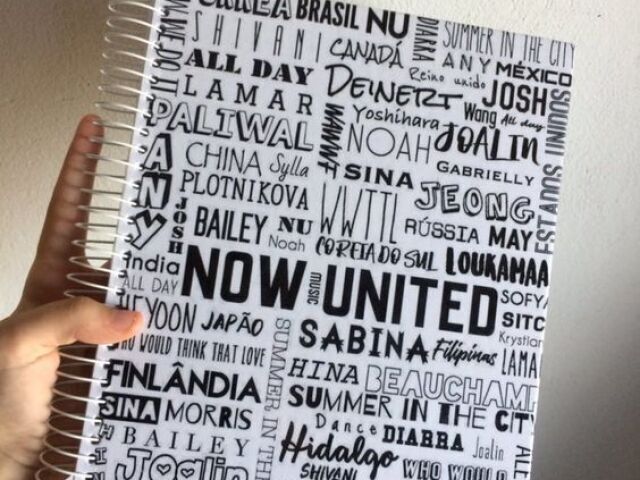 BRASIL NU
SHIVANI
CANADÁ
DIARRA
SUMMER IN THE CITY
ANY MÉXICO
ALL DAY
Reino unido
DEINERT
JOSH
LAMAR
Wang All day
Yoshihara
PALIWAL
WWWF
NOAH
JOALIN
SOUNI
ESTADOS
ANY
CHINA Sylla
SINA
GABRIELLY
PLOTNIKOVA
WWTTL
JEONG
JOSH
BAILEY NU
Noah
RÚSSIA MAY
COREIA DO SUL
LOUKAMAA
India
ALL DAY
NOW UNITED
music
SOFYA
HEYOON JAPÃO
SITC
Krystian
SABINA Filipinas
LAMA
WOULD THINK THAT LOVE
SUMMER IN THE
HINA BEAUCHAMP
FINLÂNDIA
SUMMER IN THE CITY
SINA MORRIS
Dance DIARRA Joalin
BAILEY
Hidalgo
ALL
Joalin
SHIVANI
WHO WOULD